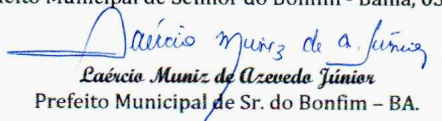 Prefeito Municipal de Senhor do Bonfim - Bahia, 03
Laércio Muniz de A. Júnior
Laércio Muniz de Azevedo Júnior
Prefeito Municipal de Sr. do Bonfim – BA.